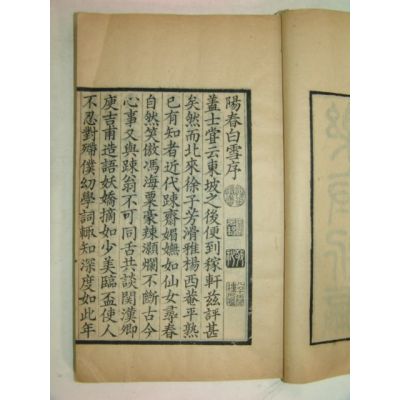 陽春白雪序
蓋士嘗云東坡之後便到稼軒茲評甚
矣然而北來徐子芳滑雅楊西菴平熟
已有知者近代踈齋媚嫵如仙女尋春
自然笑傲馮海粟豪辣灝爛不斷古今
心事又與踈翁不可同舌共談関漢卿
庾吉甫造語妖嬌摘如少美臨盃使人
不忍對殢僕幼學詞輒知深度如此年